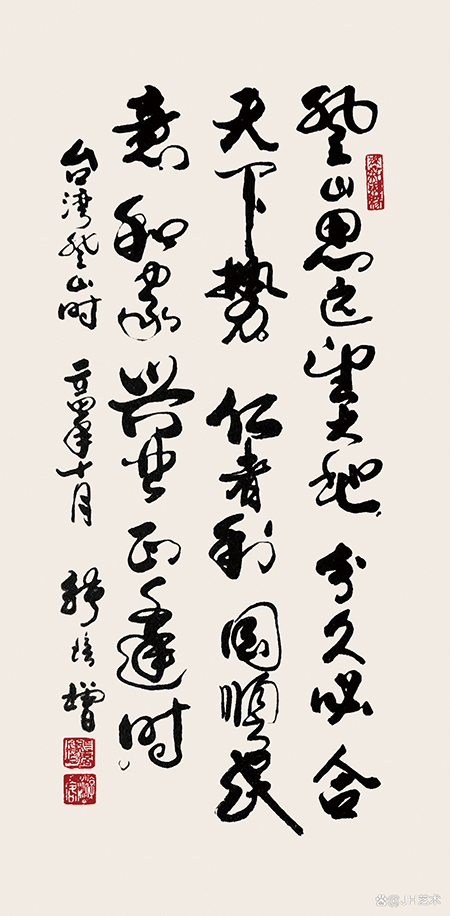 登山思远望大地 分久必合
天下势 仁者利国顺民
意 和家兴世正逢时
台湾登山时 二〇一四年十月 韩培增
@J.H艺术